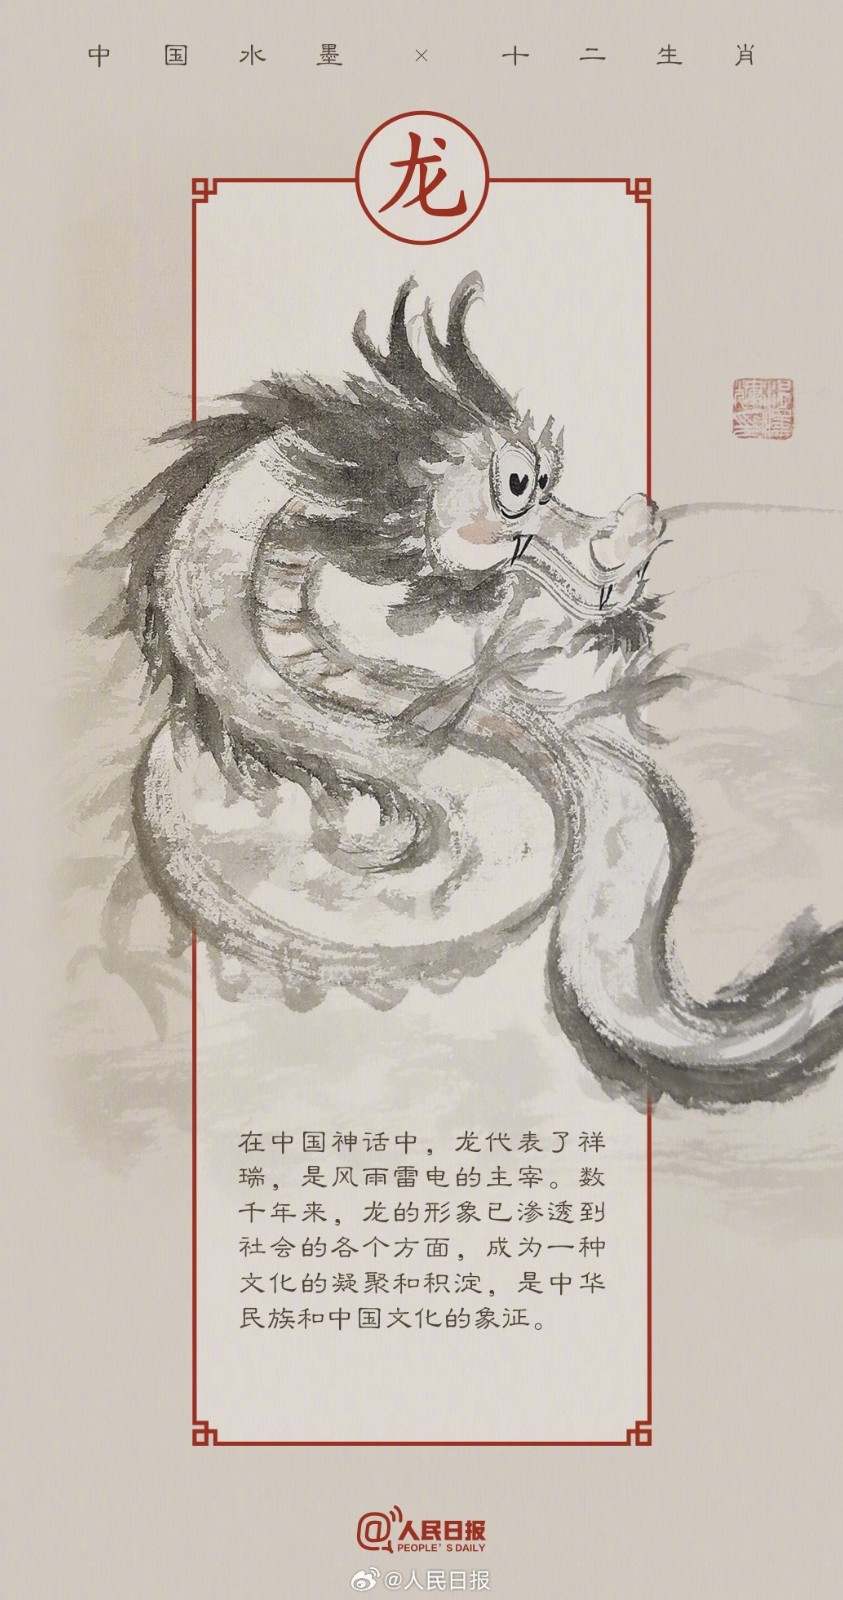 中国水墨×十二生肖
龙
在中国神话中，龙代表了祥
瑞，是风雨雷电的主宰。数
千年来，龙的形象已渗透到
社会的各个方面，成为一种
文化的凝聚和积淀，是中华
民族和中国文化的象征。
@人民日报
PEOPLE'S DAILY
@人民日报